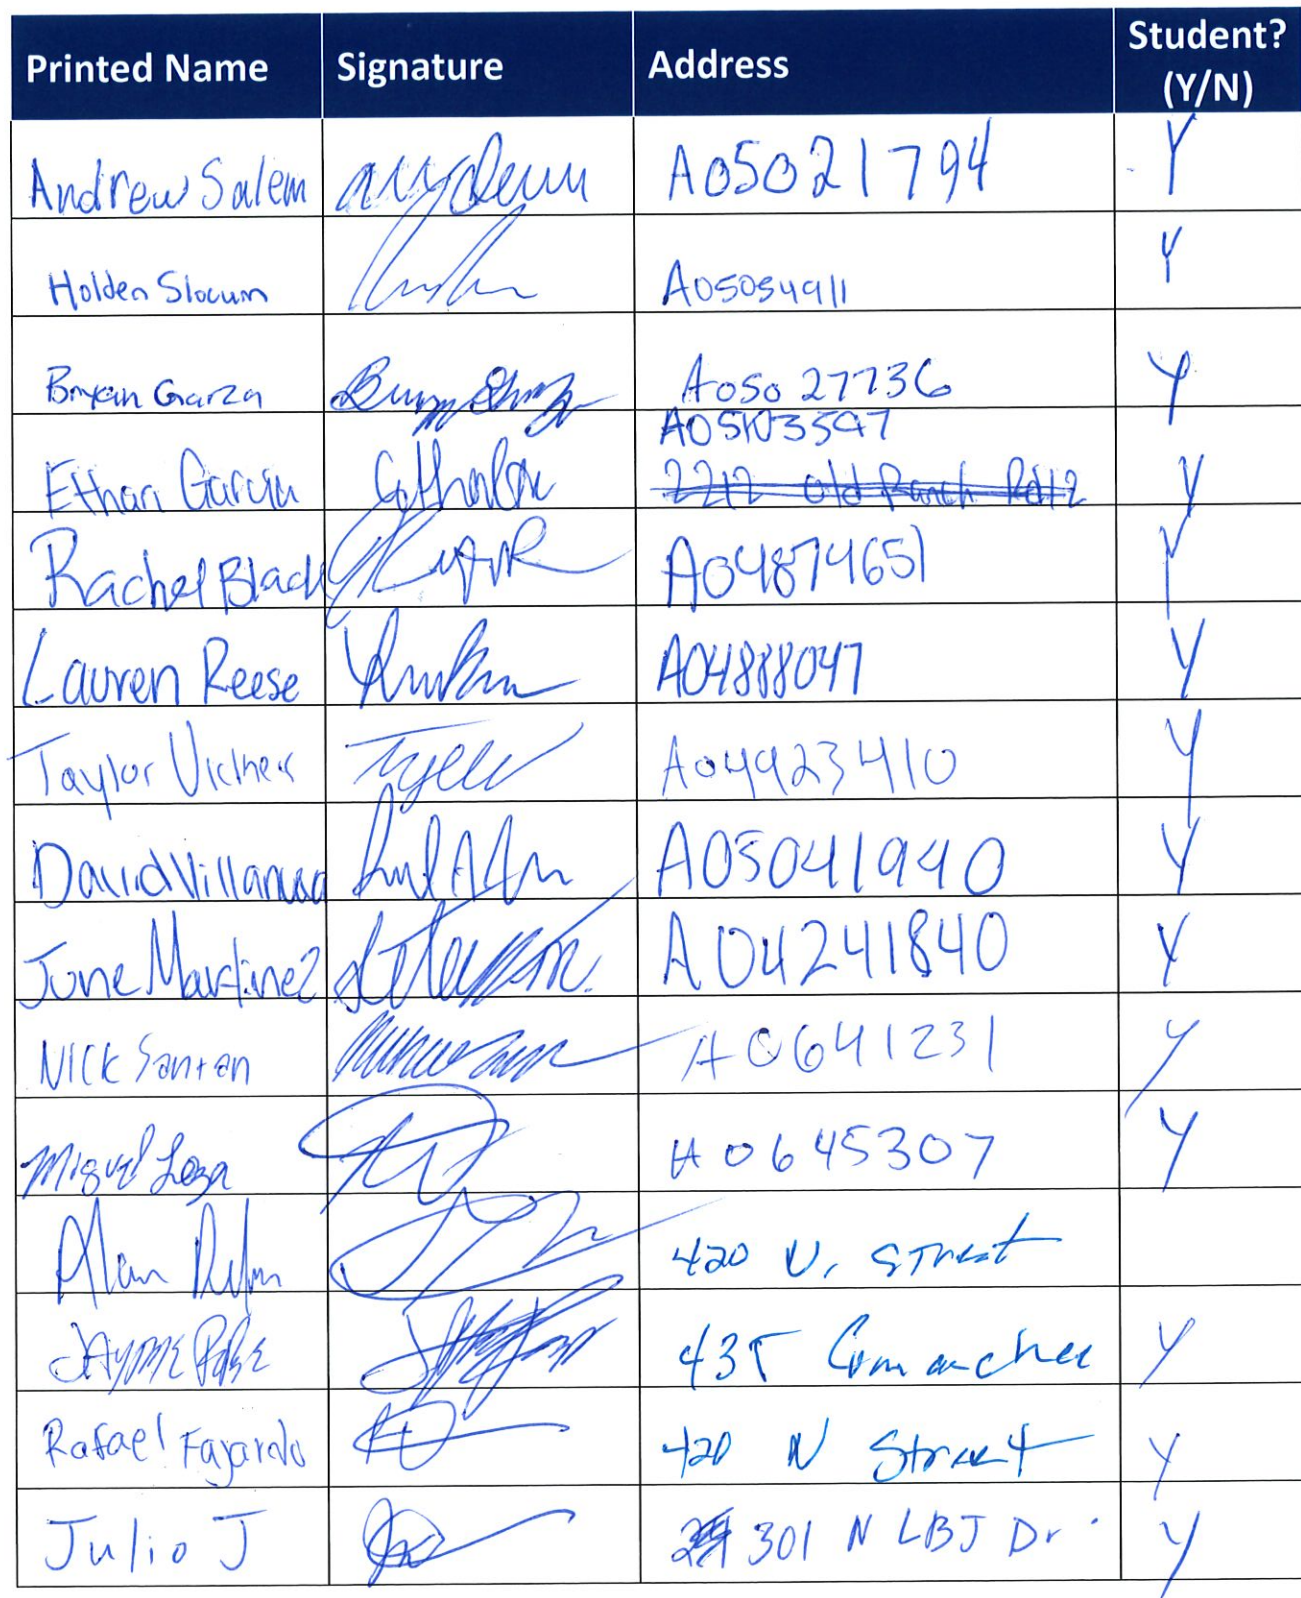 Printed Name Signature Address Student? (Y/N)
Andrew Salem A05021794 Y
Holden Slocum A05054911 Y
Bryan Garza A05027736 Y
A05103597
Ethan Garcia 2212 Old Ranch Rd 12 Y
Rachel Black A04874651 Y
Lauren Reese A04888047 Y
Taylor A04923410 Y
David Villanueva A05041940 Y
June Martinez A04241840 Y
Nick Santan A0641231 Y
Miguel Loza A0645307 Y
Alan 420 N. Street
Jayme Pope 435 Comanchee Y
Rafael Fajardo 420 N Street Y
Julio J 301 N LBJ Dr. Y